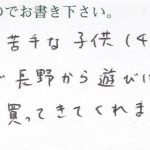 のでお書き下さい。
苦手な子供(4
ゞ長野から遊びに
買ってきてくれま